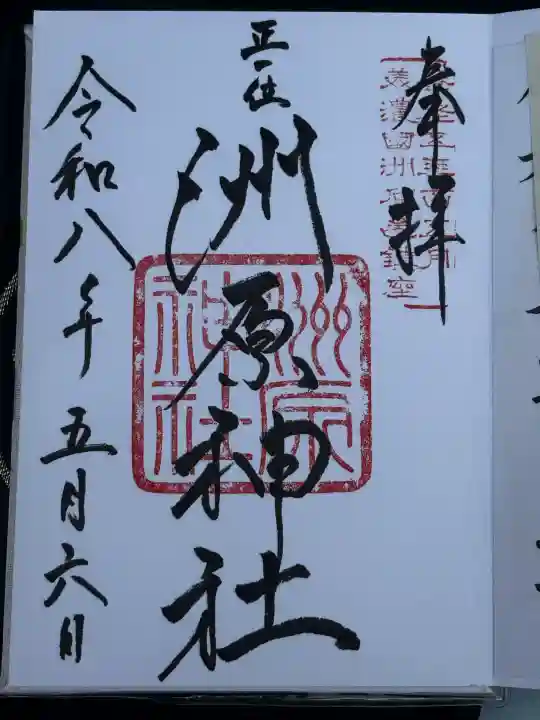 奉拝
美濃國洲原鎮座
正一位
洲原神社
洲原
神社
令和八年五月六日